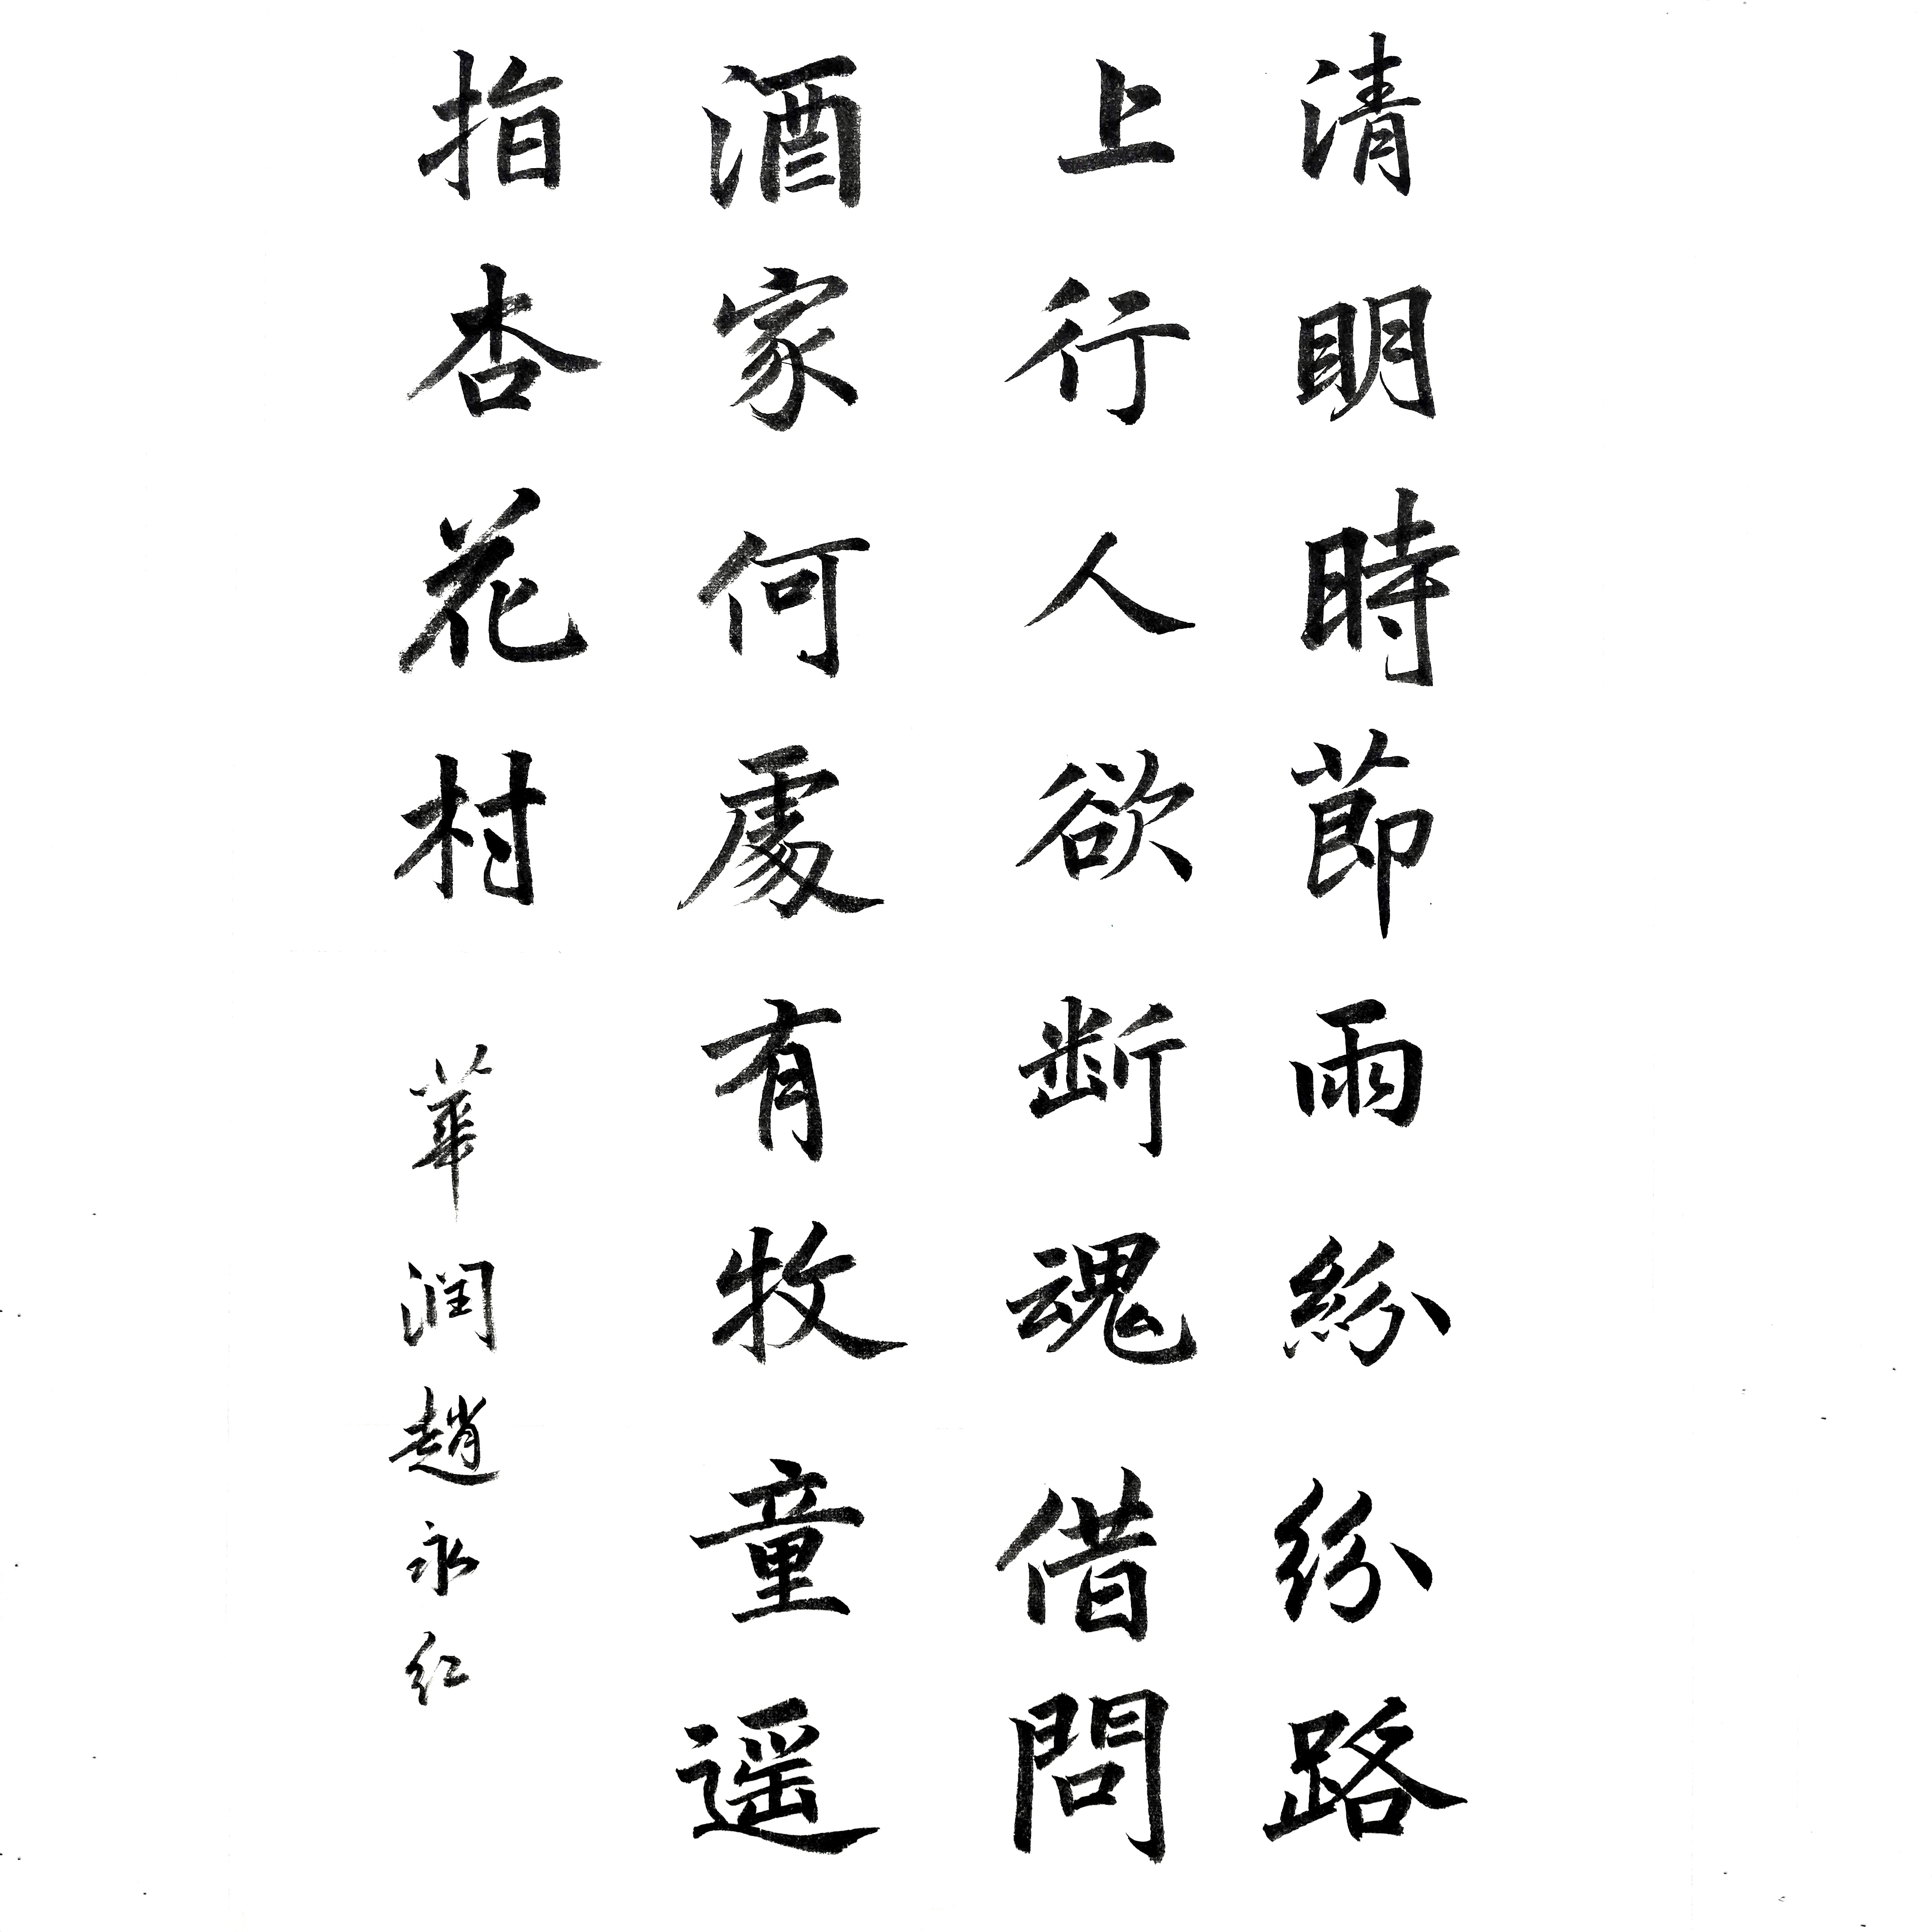 清明時節雨紛紛路
上行人欲断魂借問
酒家何處有牧童遥
指杏花村
華润趙永红